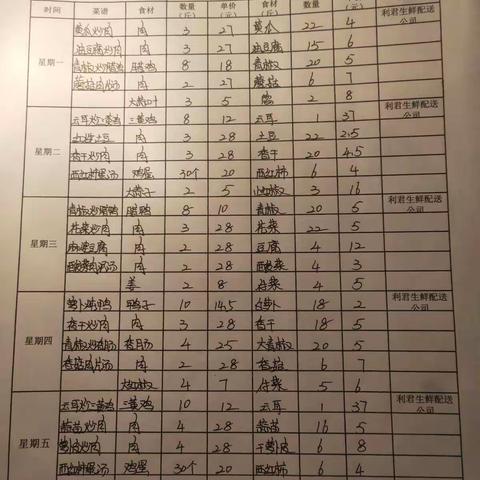 时间 菜谱 食材 数量（斤） 单价（元） 食材 数量（斤） （元）
星期一 黄瓜炒肉 肉 3 27 黄瓜 22 4 利君生鲜配送公司
油豆腐炒肉 肉 3 27 油豆腐 15 6
青椒炒腊鸭 腊鸭 8 18 青椒 20 5
蘑菇肉片汤 肉 2 27 蘑菇 6 7
3 5 葱 2 8
星期二 云耳炒三黄鸡 三黄鸡 8 12 云耳 1 37 利君生鲜配送公司
土豆 肉 3 28 土豆 22 2.5
香干炒肉 肉 3 28 香干 20 4.5
西红柿蛋汤 鸡蛋 30个 20 西红柿 6 4
2 5 小红椒 3 16
星期三 青椒炒腊鸭 腊鸭 8 10 青椒 20 5 利君生鲜配送公司
炒肉 肉 3 28 22 5
麻婆豆腐 肉 2 28 豆腐 4 12
酸菜肉沫汤 肉 2 28 酸菜 4 3
姜 2 8 4 5
星期四 萝卜炖鸭 鸭子 10 14.5 白萝卜 18 2 利君生鲜配送公司
香干炒肉 肉 3 28 香干 18 5
4 25 大青椒 20 5
香菇肉片汤 肉 2 28 香菇 6 7
大红椒 4 7 5 6
星期五 云耳炒三黄鸡 三黄鸡 10 12 云耳 1 37 利君生鲜配送公司
蒜苗炒肉 肉 4 28 蒜苗 16 5
炒肉 肉 4 28 6 8
西红柿蛋汤 鸡蛋 30个 20 西红柿 6 4